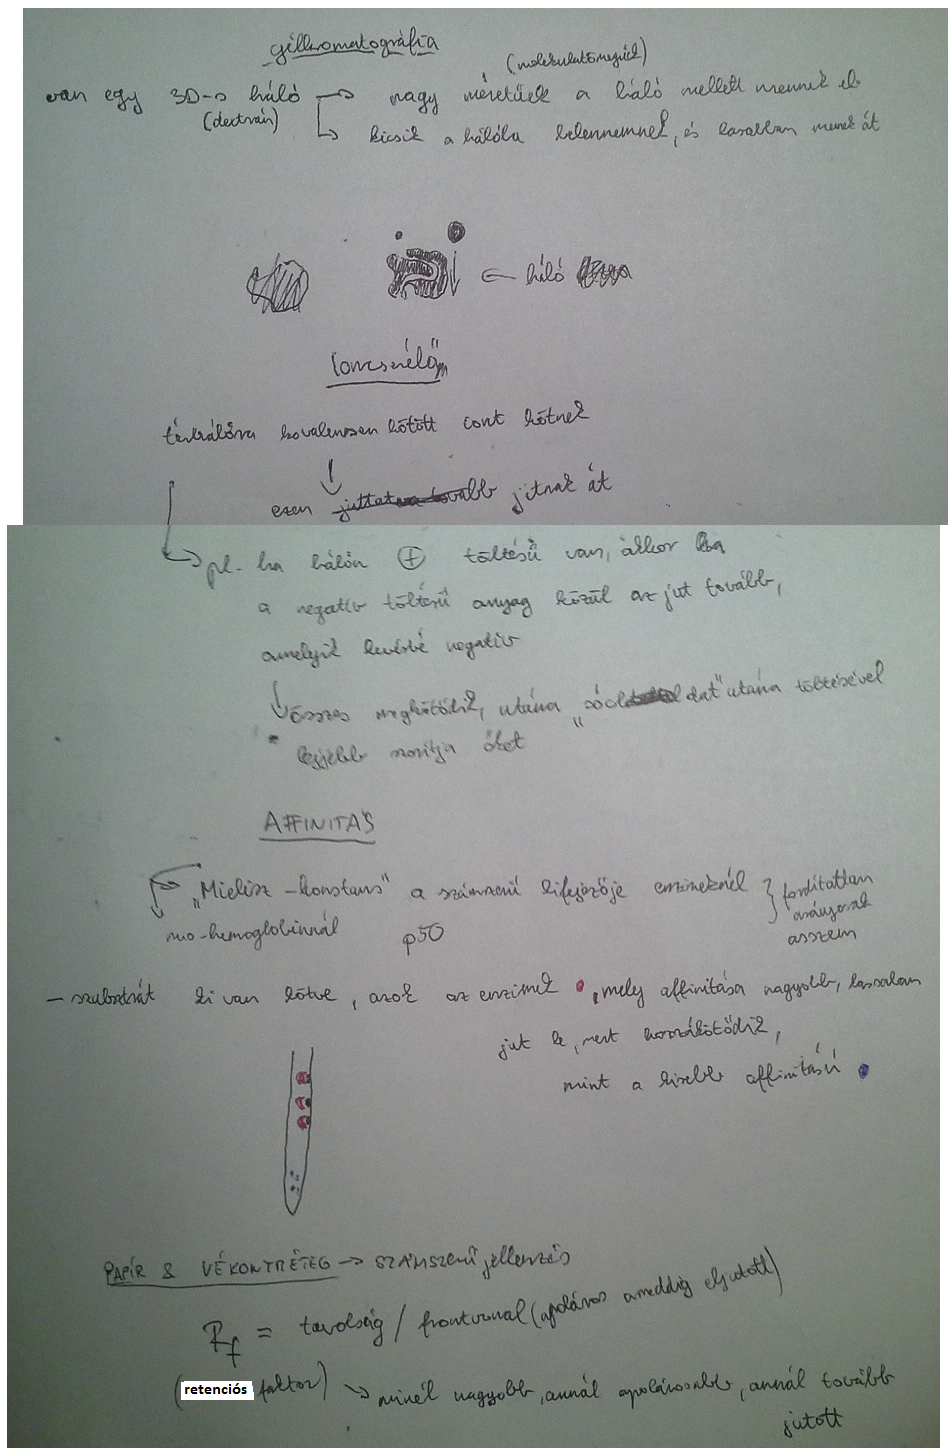 gélkromatográfia
(molekulatömegnél)
van egy 3D-s háló → nagy méretűek a háló mellett mennek el
(dextrán)
kicsik a hálóba belemennek, és lassabban mennek át
← háló
Ioncserélő
térhálóra kovalensen kötött iont kötnek
ezen jutnak át
pl. ha hálón ⊕ töltésű van, akkor
a negatív töltésű anyag közül az jut tovább,
amelyik kevésbé negatív
összes megkötődik, utána "sóoldat" utána töltésével
lejjebb szorítja őket
AFFINITÁS
"Mielisz-konstans" a számszerű kifejezője enzimeknél } fordítottan
arányosak
asszem
mio-hemoglobinnál p50
- szubsztrát ki van kötve, azok az enzimek , mely affinitása nagyobb, lassabban
jut le, mert hozzákötődik,
mint a kisebb affinitású
PAPÍR & VÉKONYRÉTEG → SZÁMSZERŰ jellemzés
Rf = távolság / frontvonal (apoláros ameddig eljutott)
(retenciós faktor) → minél nagyobb, annál apolárosabb, annál tovább
jutott